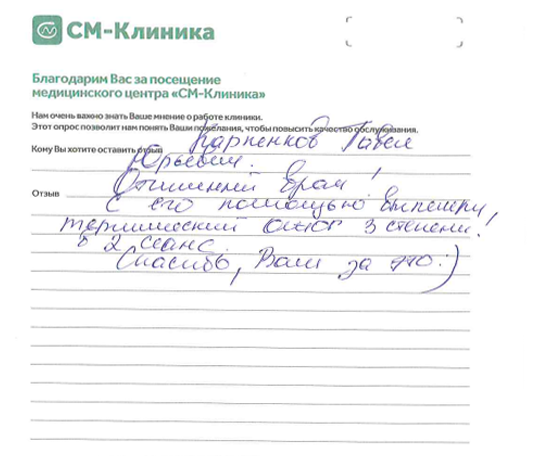 СМ-Клиника
Благодарим Вас за посещение
медицинского центра «СМ-Клиника»
Нам очень важно знать Ваше мнение о работе клиники.
Этот опрос позволит нам понять Ваши пожелания, чтобы повысить качество обслуживания.
Кому Вы хотите оставить отзыв Карпенков Павел
Юрьевич.
Отзыв Отличный врач!
С его помощью вылечили,
термический ожог 3 степени.
в 2 сеанс.
Спасибо, Вам за это:)